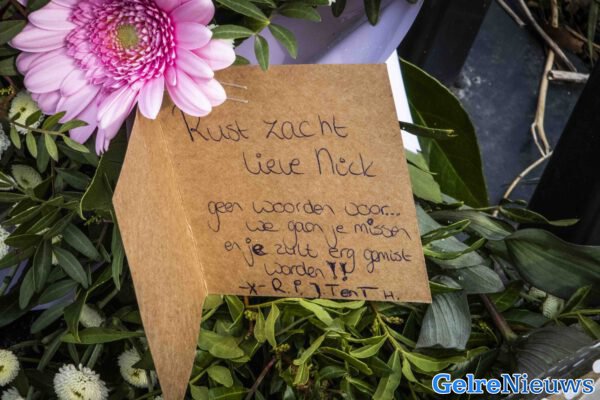 Rust zacht
lieve Nick
geen woorden voor...
we gaan je missen
en je zult erg gemist
worden!!
-x- R.I.P. J Ten T H.
GelreNieuws